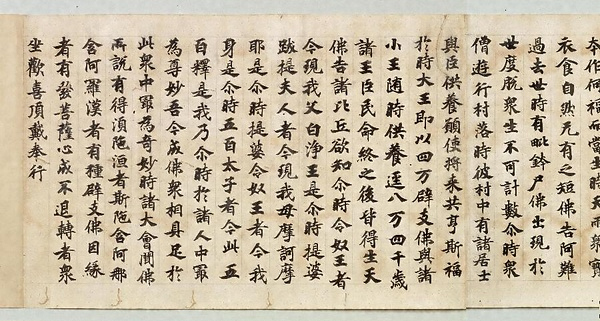 本作何福而當生時天雨衆寶
衣食自然无有之短佛告阿難
過去世時有毗鉢尸佛出現於
世度脫衆生不可計數尒時衆
僧遊行村落時彼村中有諸居士
與臣供養願使將來共享斯福
於時大王即以四万辟支佛與諸
小王随時供養逕八万四千歲
諸王臣民命終之後皆得生天
佛告諸比丘欲知尒時令奴王者
今現我父白淨王是尒時提婆
跋提夫人者今現我母摩訶摩
耶是尒時提婆令奴王者今我
身是尒時五百太子者今此五
百釋是我乃尒時於諸人中㝡
為尊妙吾今成佛衆相具足於
此衆中㝡為奇妙時諸大會聞佛
所說有得湏陁洹者斯陁含阿那
含阿羅漢者有種辟支佛因緣
者有發菩薩心成不退轉者衆
坐歡喜頂戴奉行